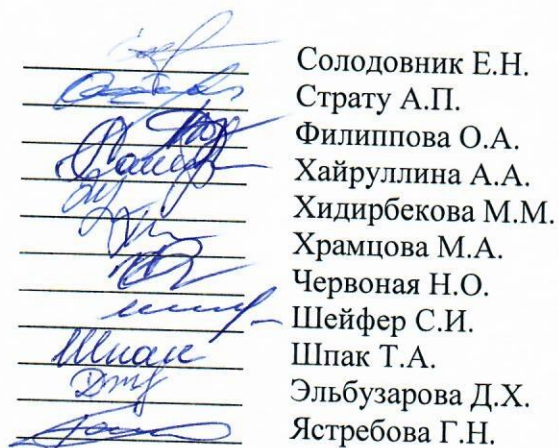 Солодовник Е.Н.
Страту А.П.
Филиппова О.А.
Хайруллина А.А.
Хидирбекова М.М.
Храмцова М.А.
Червоная Н.О.
Шейфер С.И.
Шпак Шпак Т.А.
Эльбузарова Д.Х.
Ястребова Г.Н.